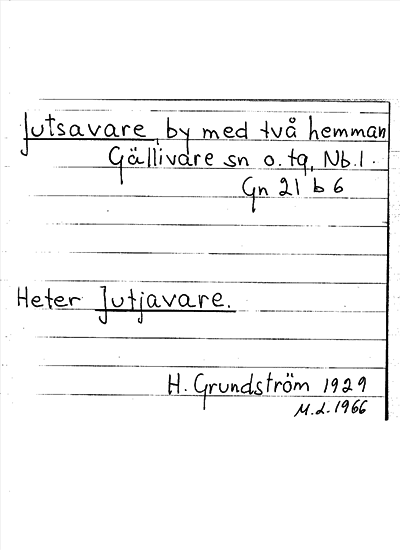 Jutsavare, by med två hemman
Gällivare sn o. tg, Nb. l.
Gn 21 b 6
Heter Jutjavare.
H. Grundström 1929
M. L. 1966